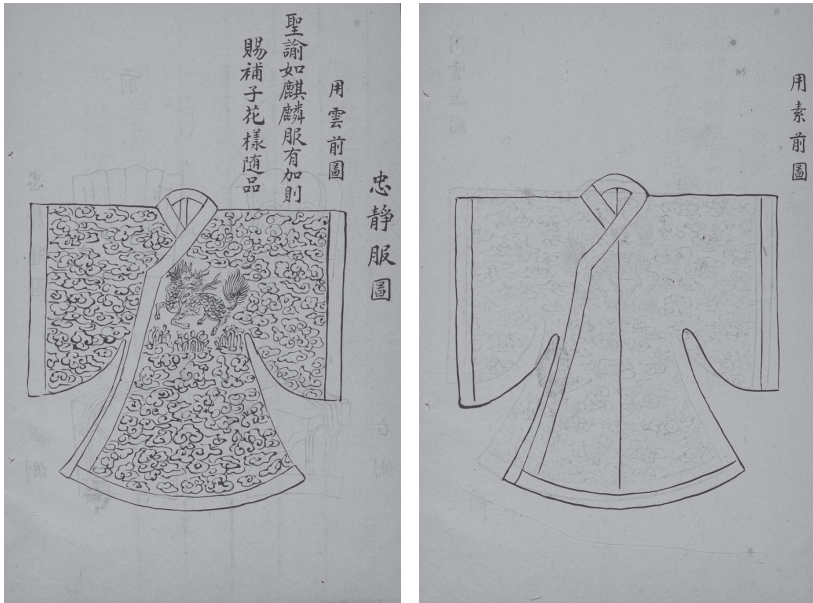 忠靜服圖
用雲前圖
聖諭如麒麟服有加則
賜補子花樣隨品
用素前圖